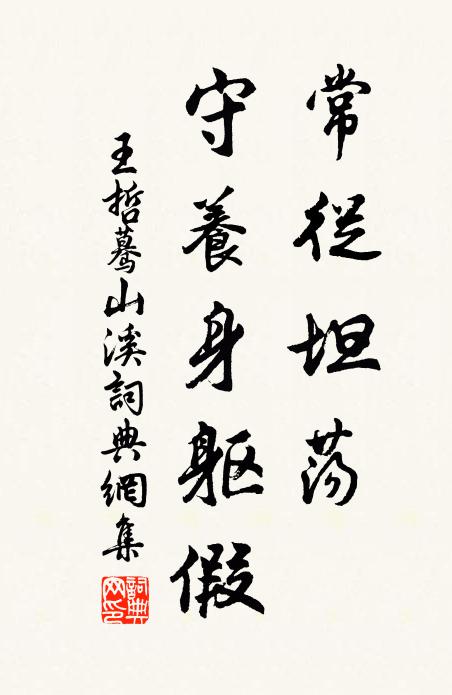 常從坦蕩
守養身軀假
王哲驀山溪詞典網集
詞典网印